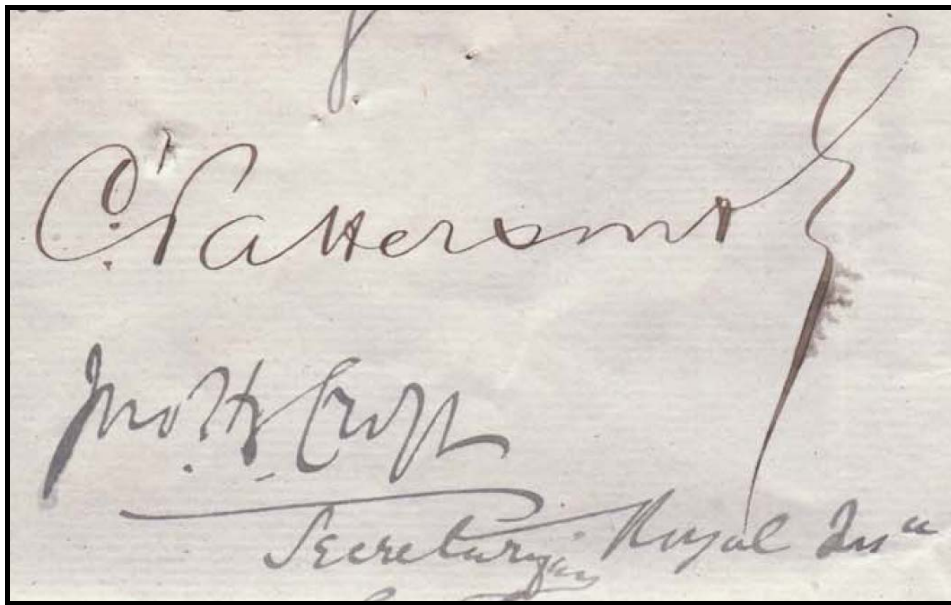 C. Patterson &
Jno. Hy. Croft
Secretary Royal Insᵃ